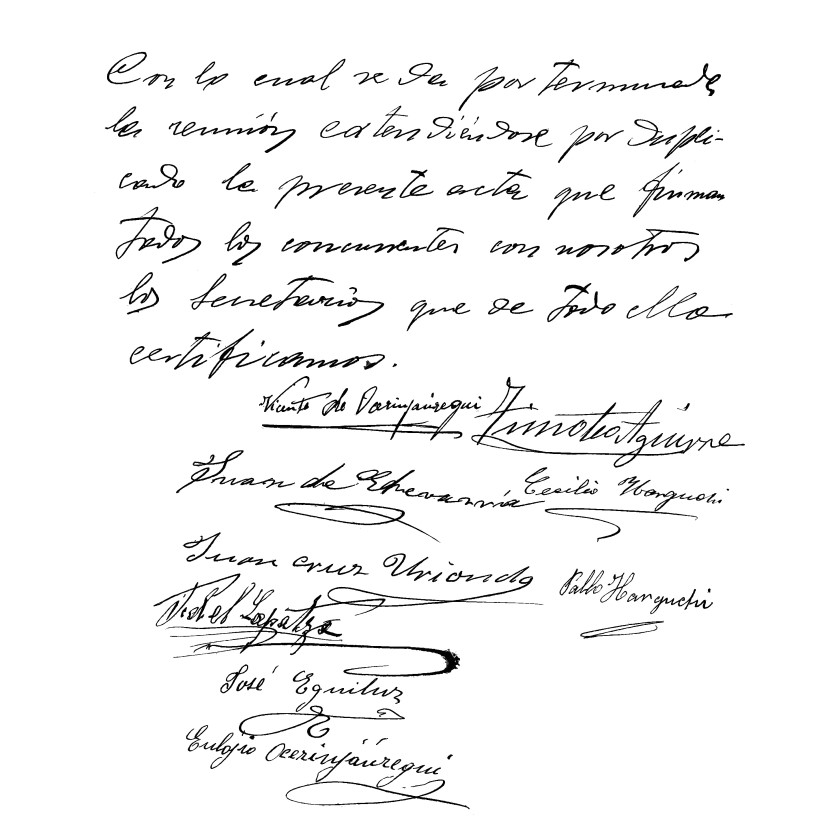 Con lo cual se da por terminada
la reunión extendiéndose por dupli-
cado la presente acta que firman
todos los concurrentes con nosotros
los Secretarios que de todo ello
certificamos.
Vicente de Ocerinjáuregui Timoteo Aguirre
Juan de Echevarría Cecilio Ybarguchi
Juan Cruz Uriondo
Pablo Ybarguchi
Fidel Lapatza
José Eguiluz
Eulojio Ocerinjáuregui